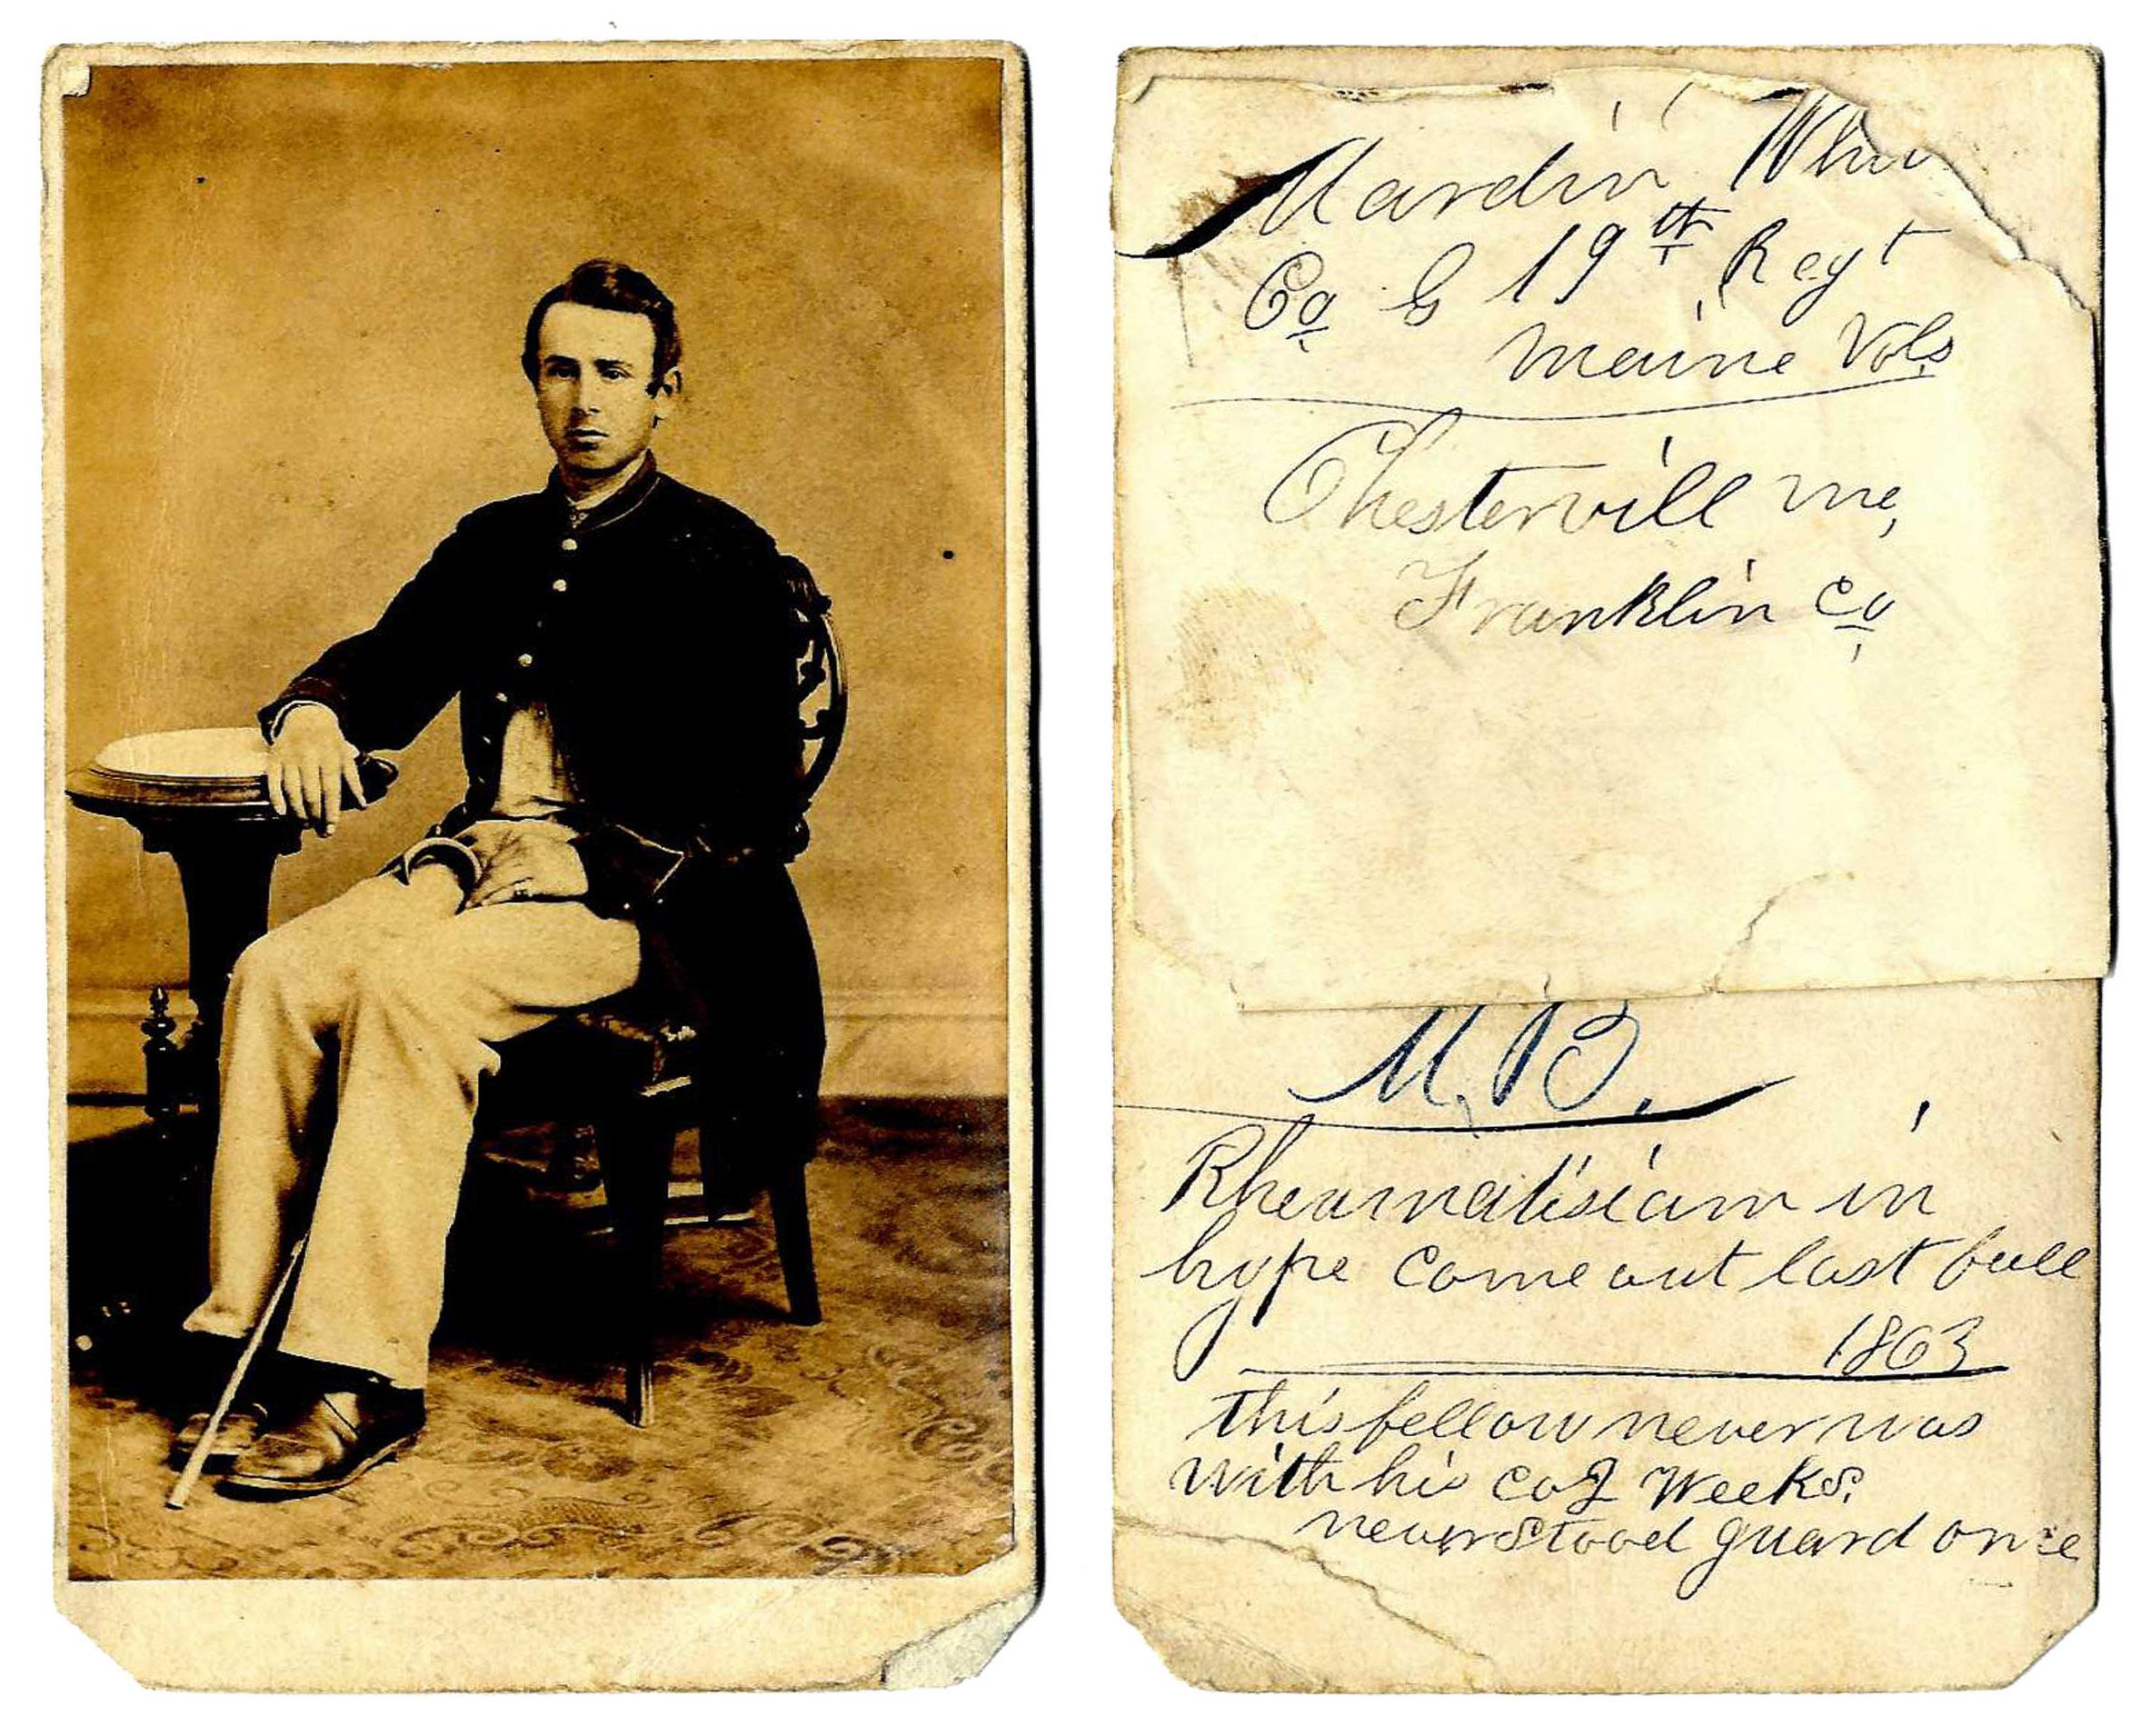 Mardin Whi
Co G 19th Regt
Maine Vols
Chestervill me,
Franklin Co
M. B.
Rheumatisiam in
hype come out last fall
1863
this fellow never was
with his co 2 Weeks.
never Stood guard once